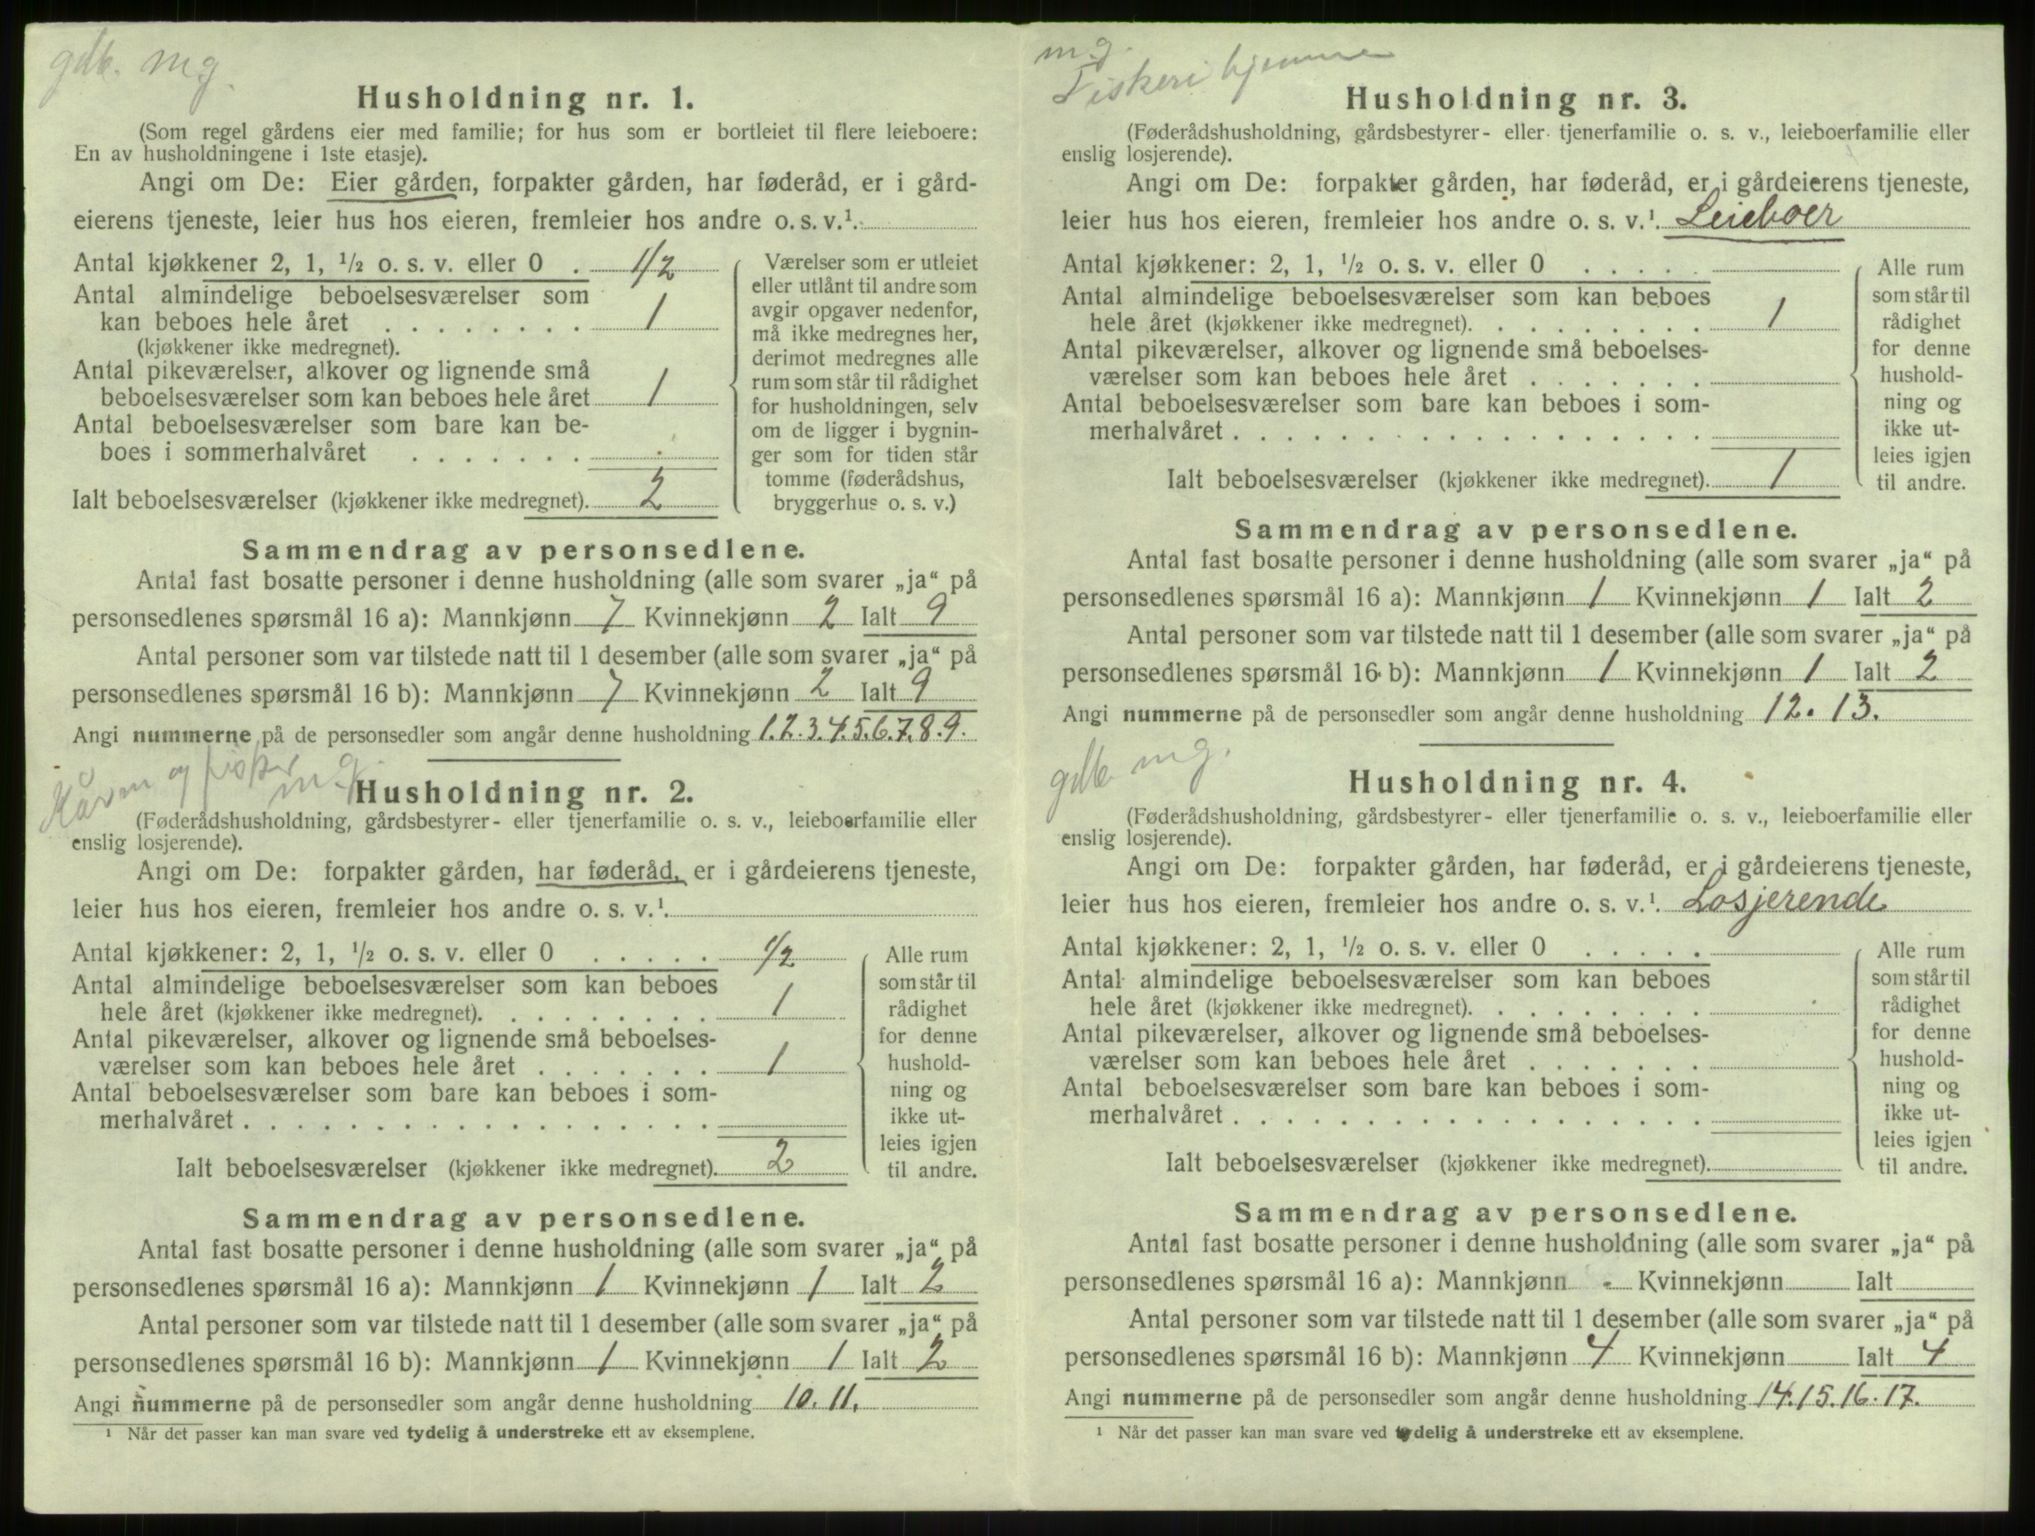 gdb. mg.
Husholdning nr. 1.
(Som regel gårdens eier med familie; for hus som er bortleiet til flere leieboere:
En av husholdningene i 1ste etasje).
Angi om De: Eier gården, forpakter gården, har føderåd, er i gård-
eierens tjeneste, leier hus hos eieren, fremleier hos andre o. s. v.¹.
Antal kjøkkener 2, 1, ½ o. s. v. eller 0 . 1/2
Antal almindelige beboelsesværelser som
kan beboes hele året . . . . . . . . 1
(kjøkkener ikke medregnet).
Antal pikeværelser, alkover og lignende små
beboelsesværelser som kan beboes hele året 1
Antal beboelsesværelser som bare kan be-
boes i sommerhalvåret . . . . . . .
Ialt beboelsesværelser (kjøkkener ikke medregnet). 2
Værelser som er utleiet
eller utlånt til andre som
avgir opgaver nedenfor,
må ikke medregnes her,
derimot medregnes alle
rum som står til rådighet
for husholdningen, selv
om de ligger i bygnin-
ger som for tiden står
tomme (føderådshus,
bryggerhus o. s. v.)
Sammendrag av personsedlene.
Antal fast bosatte personer i denne husholdning (alle som svarer „ja“ på
personsedlenes spørsmål 16 a): Mannkjønn 7 Kvinnekjønn 2 Ialt 9
Antal personer som var tilstede natt til 1 desember (alle som svarer „ja“ på
personsedlenes spørsmål 16 b): Mannkjønn 7 Kvinnekjønn 2 Ialt 9
Angi nummerne på de personsedler som angår denne husholdning 1.2.3.4.5.6.7.8.9.
og fisker mg.
Husholdning nr. 2.
(Føderådshusholdning, gårdsbestyrer- eller tjenerfamilie o. s. v., leieboerfamilie eller
enslig losjerende).
Angi om De: forpakter gården, har føderåd, er i gårdeierens tjeneste,
leier hus hos eieren, fremleier hos andre o. s. v.¹.
Antal kjøkkener: 2, 1, ½ o. s. v. eller 0 . . . . . 1/2
Antal almindelige beboelsesværelser som kan beboes
hele året (kjøkkener ikke medregnet). . . . . . . . . 1
Antal pikeværelser, alkover og lignende små beboelses-
værelser som kan beboes hele året . . . . . . . 1
Antal beboelsesværelser som bare kan beboes i som-
merhalvåret . . . . . . . . . . . . . . . . . .
Ialt beboelsesværelser (kjøkkener ikke medregnet). 2
Alle rum
som står til
rådighet
for denne
hushold-
ning og
ikke ut-
leies igjen
til andre.
Sammendrag av personsedlene.
Antal fast bosatte personer i denne husholdning (alle som svarer „ja“ på
personsedlenes spørsmål 16 a): Mannkjønn 1 Kvinnekjønn 1 Ialt 2
Antal personer som var tilstede natt til 1 desember (alle som svarer „ja“ på
personsedlenes spørsmål 16 b): Mannkjønn 1 Kvinnekjønn 1 Ialt 2
Angi nummerne på de personsedler som angår denne husholdning 10. 11.
¹ Når det passer kan man svare ved tydelig å understreke ett av eksemplene.
mg.
Fiskeri hjemme
Husholdning nr. 3.
(Føderådshusholdning, gårdsbestyrer- eller tjenerfamilie o. s. v., leieboerfamilie eller
enslig losjerende).
Angi om De: forpakter gården, har føderåd, er i gårdeierens tjeneste,
leier hus hos eieren, fremleier hos andre o. s. v.¹. Leieboer
Antal kjøkkener: 2, 1, ½ o. s. v. eller 0 . . . . .
Antal almindelige beboelsesværelser som kan beboes
hele året (kjøkkener ikke medregnet). . . . . . . . . 1
Antal pikeværelser, alkover og lignende små beboelses-
værelser som kan beboes hele året . . . . . . .
Antal beboelsesværelser som bare kan beboes i som-
merhalvåret . . . . . . . . . . . . . . . . . .
Ialt beboelsesværelser (kjøkkener ikke medregnet). 1
Alle rum
som står til
rådighet
for denne
hushold-
ning og
ikke ut-
leies igjen
til andre.
Sammendrag av personsedlene.
Antal fast bosatte personer i denne husholdning (alle som svarer „ja“ på
personsedlenes spørsmål 16 a): Mannkjønn 1 Kvinnekjønn 1 Ialt 2
Antal personer som var tilstede natt til 1 desember (alle som svarer „ja“ på
personsedlenes spørsmål 16 b): Mannkjønn 1 Kvinnekjønn 1 Ialt 2
Angi nummerne på de personsedler som angår denne husholdning 12. 13.
gdb. mg.
Husholdning nr. 4.
(Føderådshusholdning, gårdsbestyrer- eller tjenerfamilie o. s. v., leieboerfamilie eller
enslig losjerende).
Angi om De: forpakter gården, har føderåd, er i gårdeierens tjeneste,
leier hus hos eieren, fremleier hos andre o. s. v.¹. Losjerende
Antal kjøkkener: 2, 1, ½ o. s. v. eller 0 . . . . .
Antal almindelige beboelsesværelser som kan beboes
hele året (kjøkkener ikke medregnet). . . . . . . . .
Antal pikeværelser, alkover og lignende små beboelses-
værelser som kan beboes hele året . . . . . . .
Antal beboelsesværelser som bare kan beboes i som-
merhalvåret . . . . . . . . . . . . . . . . . .
Ialt beboelsesværelser (kjøkkener ikke medregnet).
Alle rum
som står til
rådighet
for denne
hushold-
ning og
ikke ut-
leies igjen
til andre.
Sammendrag av personsedlene.
Antal fast bosatte personer i denne husholdning (alle som svarer „ja“ på
personsedlenes spørsmål 16 a): Mannkjønn - Kvinnekjønn Ialt
Antal personer som var tilstede natt til 1 desember (alle som svarer „ja“ på
personsedlenes spørsmål 16 b): Mannkjønn 4 Kvinnekjønn Ialt 4
Angi nummerne på de personsedler som angår denne husholdning 14.15.16.17.
¹ Når det passer kan man svare ved tydelig å understreke ett av eksemplene.